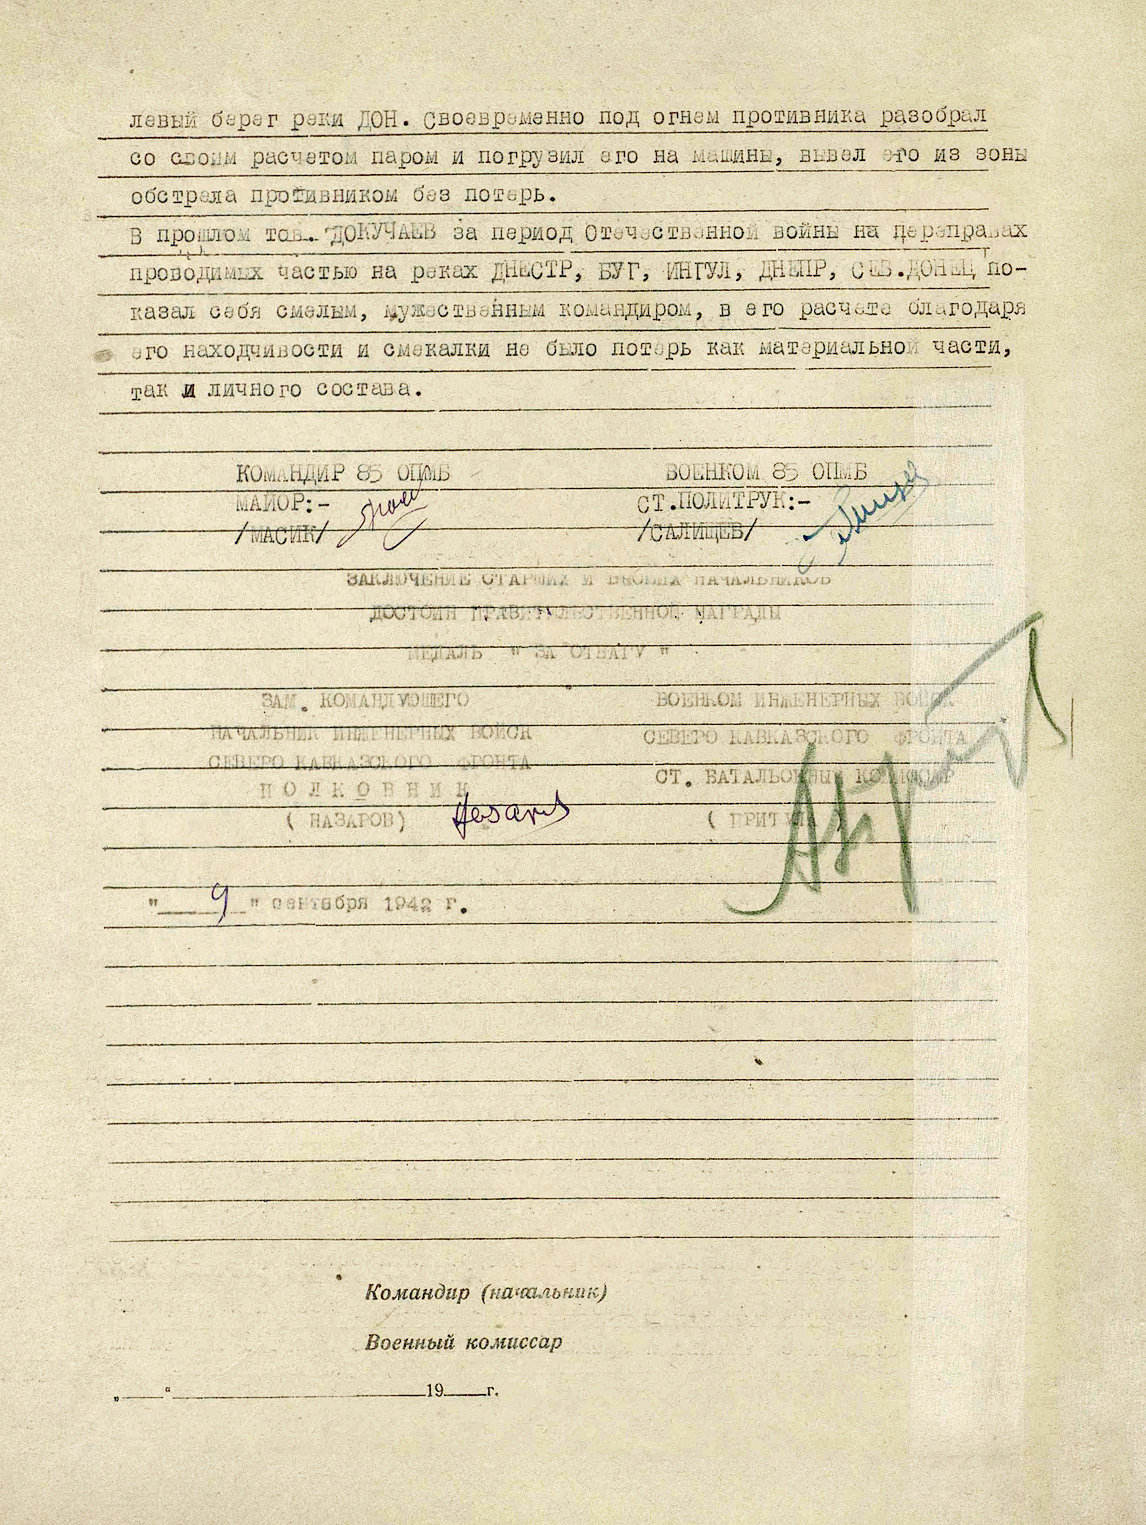 левый берег реки ДОН. Своевременно под огнем противника разобрал
со своим расчетом паром и погрузил его на машины, вывел его из зоны
обстрела противником без потерь.
В прошлом тов. ДОКУЧАЕВ за период Отечественной войны на переправах
проводимых частью на реках ДНЕСТР, БУГ, ИНГУЛ, ДНЕПР, СЕВ.ДОНЕЦ по-
казал себя смелым, мужественным командиром, в его расчете благодаря
его находчивости и смекалки не было потерь как материальной части,
так и личного состава.
КОМАНДИР 85 ОПМБ ВОЕНКОМ 85 ОПМБ
МАЙОР:- СТ.ПОЛИТРУК:-
/МАСИК/ /САЛИЩЕВ/
ЗАКЛЮЧЕНИЕ СТАРШИХ И ВЫСШИХ НАЧАЛЬНИКОВ
ДОСТОИН ПРАВИТЕЛЬСТВЕННОЙ НАГРАДЫ
МЕДАЛЬ " ЗА ОТВАГУ "
ЗАМ. КОМАНДУЮЩЕГО ВОЕНКОМ ИНЖЕНЕРНЫХ ВОЙСК
НАЧАЛЬНИК ИНЖЕНЕРНЫХ ВОЙСК СЕВЕРО КАВКАЗСКОГО ФРОНТА
СЕВЕРО КАВКАЗСКОГО ФРОНТА СТ. БАТАЛЬОННЫЙ КОМИССАР
ПОЛКОВНИК
( НАЗАРОВ) Назаров ( ПРИТУЛА )
" 9 " сентября 1942 г.
Командир (начальник)
Военный комиссар
„ “ 19 г.